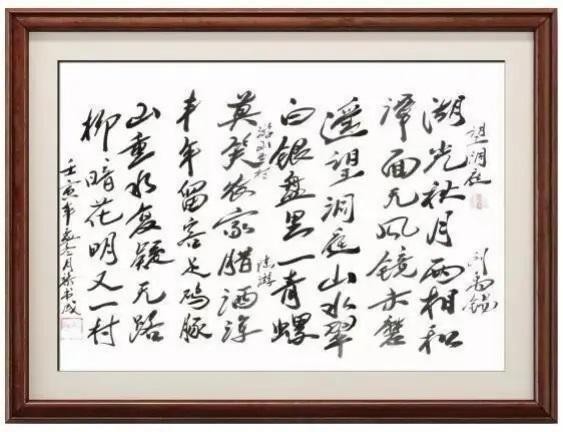 望洞庭 刘禹锡
湖光秋月两相和
潭面无风镜未磨
遥望洞庭山水翠
白银盘里一青螺
游山西村 陆游
莫笑农家腊酒浑
丰年留客足鸡豚
山重水复疑无路
柳暗花明又一村
壬寅年 月 书